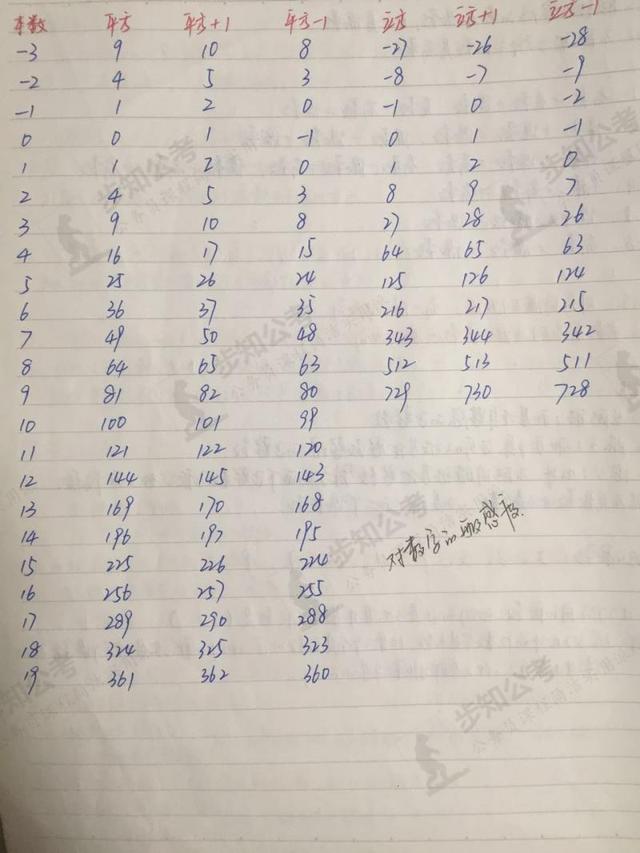 本数 平方 平方+1 平方-1 立方 立方+1 立方-1
-3 9 10 8 -27 -26 -28
-2 4 5 3 -8 -7 -9
-1 1 2 0 -1 0 -2
0 0 1 -1 0 1 -1
1 1 2 0 1 2 0
2 4 5 3 8 9 7
3 9 10 8 27 28 26
4 16 17 15 64 65 63
5 25 26 24 125 126 124
6 36 37 35 216 217 215
7 49 50 48 343 344 342
8 64 65 63 512 513 511
9 81 82 80 729 730 728
10 100 101 99
11 121 122 120
12 144 145 143
13 169 170 168
14 196 197 195
对数字的敏感度.
15 225 226 224
16 256 257 255
17 289 290 288
18 324 325 323
19 361 362 360
步知公考
步知公考
步知公考
步知公考
步知公考
步知公考